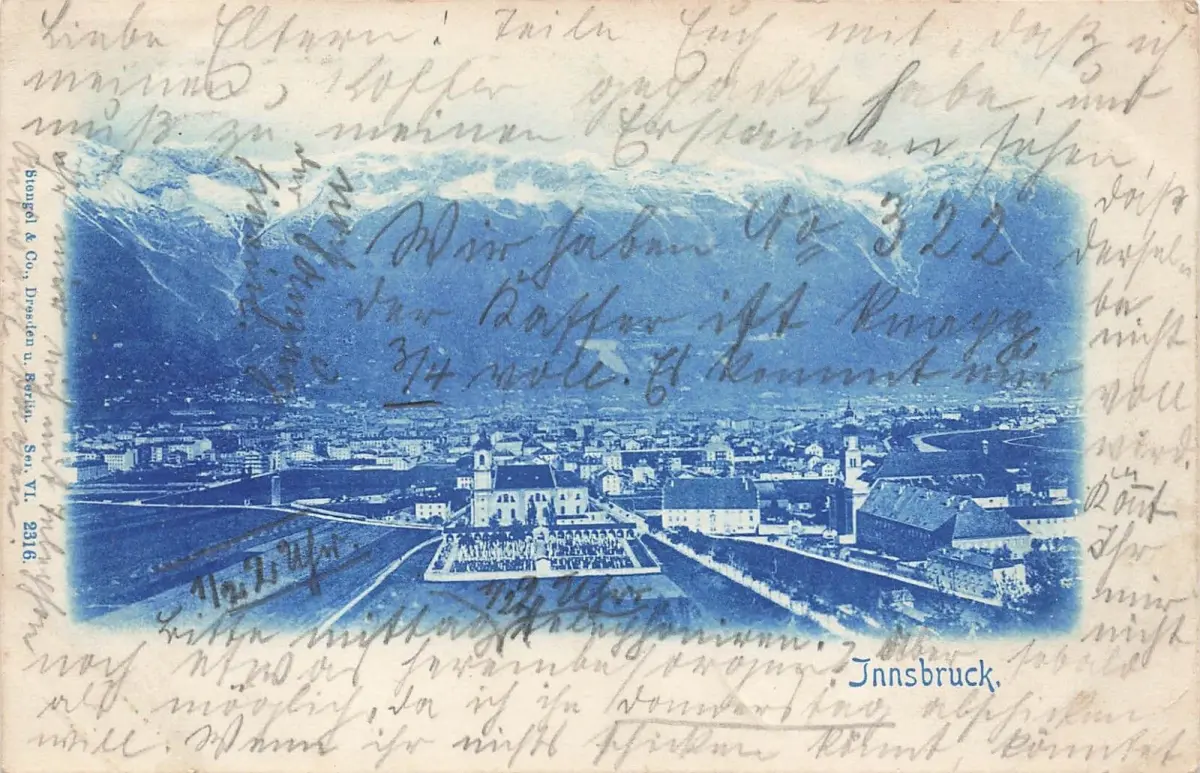 Liebe Eltern! Teile Euch mit, daß ich
meinen Koffer gepackt habe, und
muß zu meinen Erstaunen sehen,
daß
derselbe
nicht
voll
wird.
Könnt
Ihr
mir
nicht
noch etwas herein besorgen? Aber sobald
als möglich, da ich ihn Donnerstag abschicken
will. Wenn ihr nichts schicken könnt, könntet
Ihr mir
Wir haben No 322
der Koffer ist knapp
3/4 voll. Es kommt mir
1/2 2 Uhr
12 Uhr
Bitte mittags telephoniren.
Innsbruck.
Stengel & Co., Dresden u. Berlin. Ser. VI. 2316.